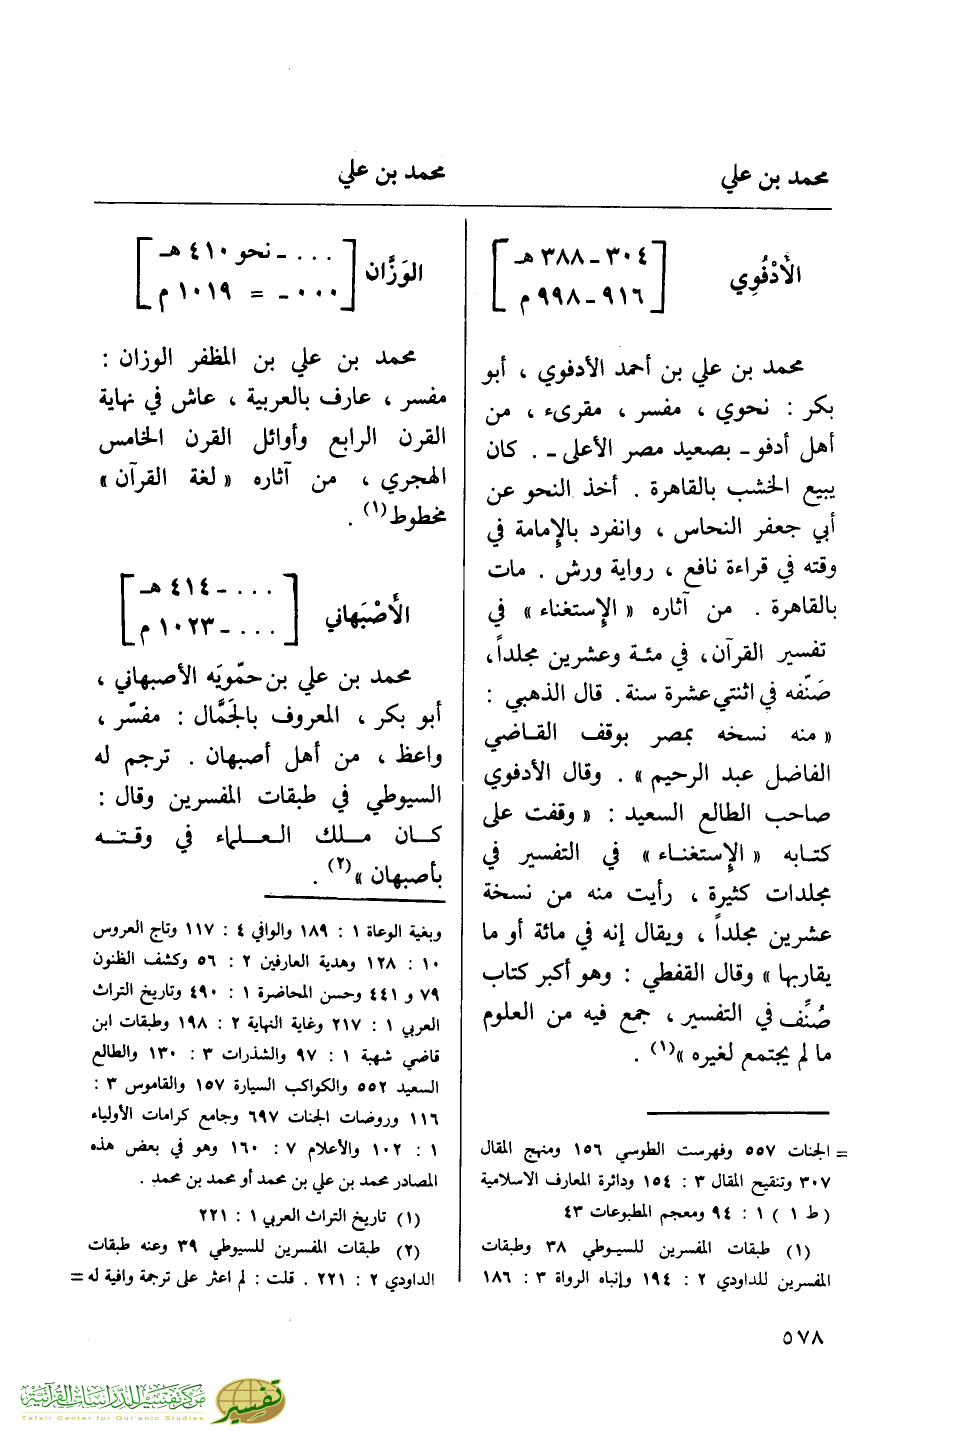 محمد بن علي
محمد بن علي
الأُدْفُوِي
[ ٣٠٤ - ٣٨٨ هـ
٩١٦ - ٩٩٨ م ]
محمد بن علي بن أحمد الأدفوي ، أبو
بكر : نحوي ، مفسر ، مقرىء ، من
أهل أدفو - بصعيد مصر الأعلى - . كان
يبيع الخشب بالقاهرة . أخذ النحو عن
أبي جعفر النحاس ، وانفرد بالإمامة في
وقته في قراءة نافع ، رواية ورش . مات
بالقاهرة . من آثاره « الإستغناء » في
تفسير القرآن، في مئة وعشرين مجلداً،
صَنّفه في اثنتي عشرة سنة . قال الذهبي :
« منه نسخه بمصر بوقف القاضي
الفاضل عبد الرحيم » . وقال الأدفوي
صاحب الطالع السعيد : « وقفت على
كتابه « الإستغناء » في التفسير في
مجلدات كثيرة ، رأيت منه من نسخة
عشرين مجلداً ، ويقال إنه في مائة أو ما
يقاربها » وقال القفطي : وهو أكبر كتاب
صُنِّف في التفسير ، جمع فيه من العلوم
ما لم يجتمع لغيره »(١) .
= الجنات ٥٥٧ وفهرست الطوسي ١٥٦ ومنهج المقال
٣٠٧ وتنقيح المقال ٣ : ١٥٤ ودائرة المعارف الاسلامية
( ط ١ ) ١ : ٩٤ ومعجم المطبوعات ٤٣
(١) طبقات المفسرين للسيوطي ٣٨ وطبقات
المفسرين للداودي ٢ : ١٩٤ وإنباه الرواة ٣ : ١٨٦
الوَزَّان
[ . . . - نحو ٤١٠ هـ
٠٠٠ - = ١٠١٩ م ]
محمد بن علي بن المظفر الوزان :
مفسر ، عارف بالعربية ، عاش في نهاية
القرن الرابع وأوائل القرن الخامس
الهجري ، من آثاره « لغة القرآن »
مخطوط(١) .
الأَصْبَهاني
[ . . . - ٤١٤ هـ
. . . - ١٠٢٣ م ]
محمد بن علي بن حمّويَه الأصبهاني ،
أبو بكر ، المعروف بالجَمَّال : مفسّر ،
واعظ ، من أهل أصبهان . ترجم له
السيوطي في طبقات المفسرين وقال :
كان ملك العلماء في وقته
بأصبهان »(٢) .
وبغية الوعاة ١ : ١٨٩ والوافي ٤ : ١١٧ وتاج العروس
١٠ : ١٢٨ وهدية العارفين ٢ : ٥٦ وكشف الظنون
٧٩ و ٤٤١ وحسن المحاضرة ١ : ٤٩٠ وتاريخ التراث
العربي ١ : ٢١٧ وغاية النهاية ٢ : ١٩٨ وطبقات ابن
قاضي شهبة ١ : ٩٧ والشذرات ٣ : ١٣٠ والطالع
السعيد ٥٥٢ والكواكب السيارة ١٥٧ والقاموس ٣ :
١١٦ وروضات الجنات ٦٩٧ وجامع كرامات الأولياء
١ : ١٠٢ والأعلام ٧ : ١٦٠ وهو في بعض هذه
المصادر محمد بن علي بن محمد أو محمد بن محمد .
(١) تاريخ التراث العربي ١ : ٢٢١
(٢) طبقات المفسرين للسيوطي ٣٩ وعنه طبقات
الداودي ٢ : ٢٢١ . قلت : لم اعثر على ترجمة وافية له =
٥٧٨
مركز تفسير للدراسات القرآنية
Tafsir Center for Qur'anic Studies
تفسير